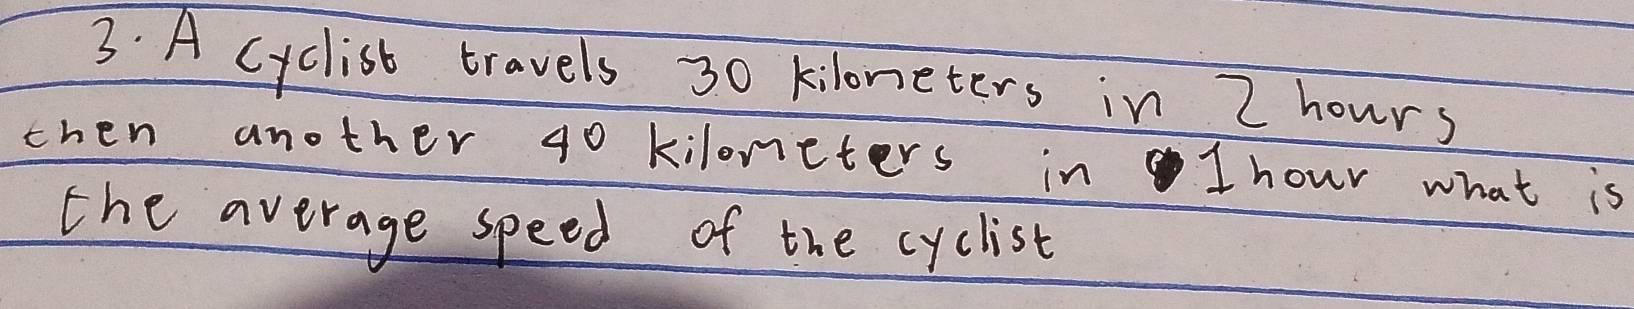 3. A cyclist travels 30 kilometers in 2 hours
then another 40 kilometers in 1 hour what is
the average speed of the cyclist